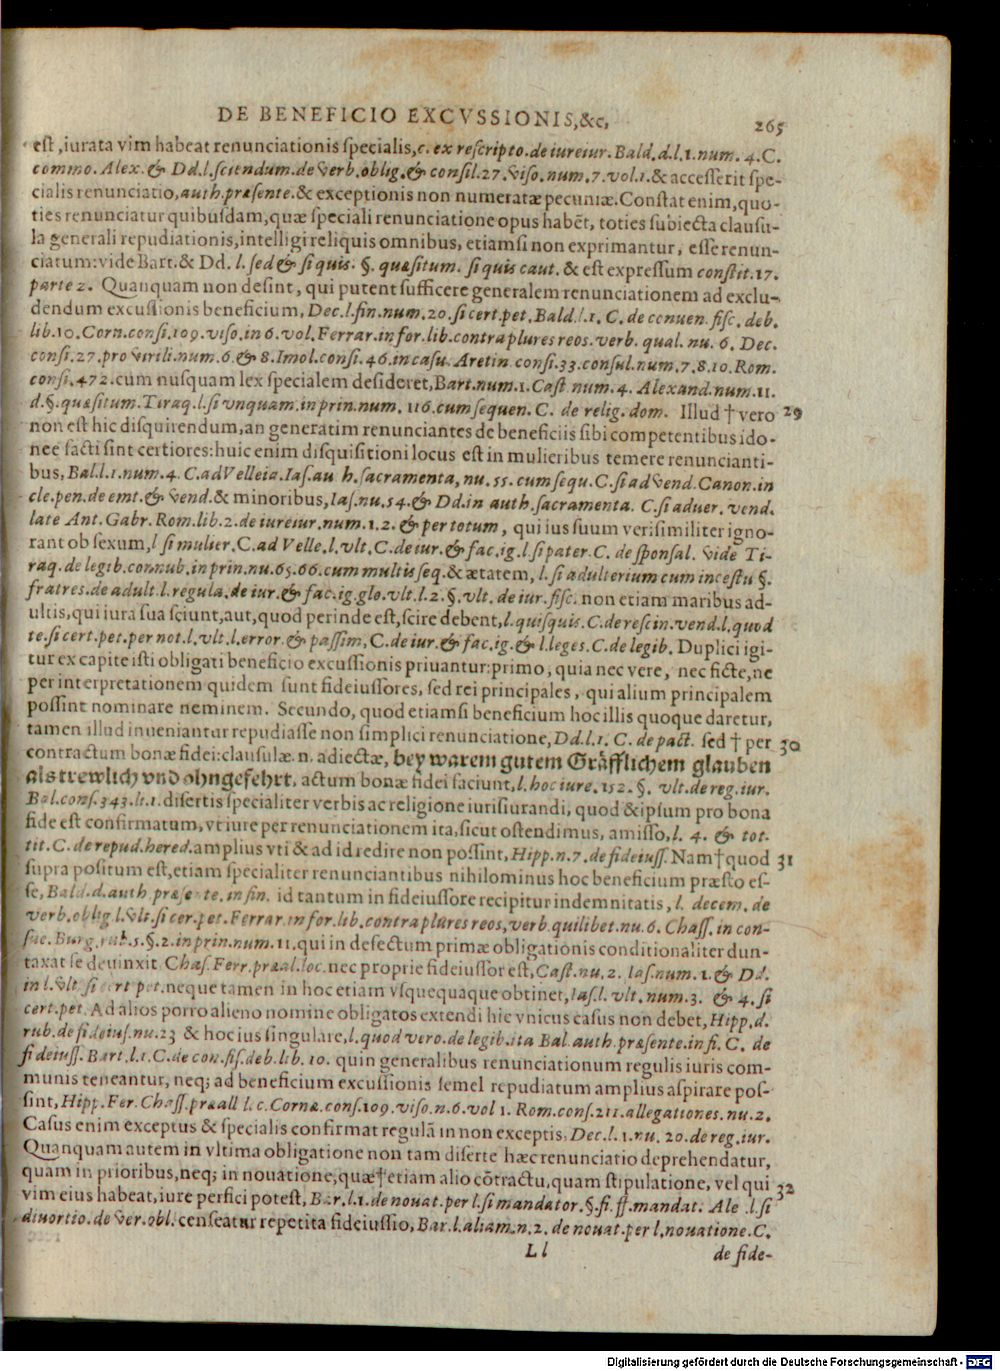 DE BENEFICIO EXCVSSIONIS,&c,
265
est, iurata vim habeat renunciationis specialis, c. ex rescripto. de iureiur. Bald. d. l. 1. num. 4. C.
commo. Alex. & Dd. l. sciendum. de verb. oblig. & consil. 27. viso. num. 7. vol. 1. & accesserit spe-
cialis renunciatio, auth. præsente. & exceptionis non numeratæ pecuniæ. Constat enim, quo-
ties renunciatur quibusdam, quæ speciali renunciatione opus habẽt, toties subiecta clausu-
la generali repudiationis, intelligi reliquis omnibus, etiamsi non exprimantur, esse renun-
ciatum: vide Bart. & Dd. l. sed & si quis. §. quæsitum. si quis caut. & est expressum constit. 17.
parte 2. Quanquam non desint, qui putent sufficere generalem renunciationem ad exclu-
dendum excussionis beneficium, Dec. l. fin. num. 20. si cert. pet. Bald. l. 1. C. de conuen. fisc. deb.
lib. 10. Corn. consi. 109. viso. in 6. vol. Ferrar. in for. lib. contra plures reos. verb. qual. nu. 6. Dec.
consi. 27. pro virili. num. 6. & 8. Imol. consi. 46. in casu. Aretin consi. 33. consul. num. 7. 8. 10. Rom.
consi. 472. cum nusquam lex specialem desideret, Bart. num. 1. Cast num. 4. Alexand. num. 11.
d. §. quæsitum. Tiraq. l. si vnquam. in prin. num. 116. cum sequen. C. de relig. dom. Illud † vero 29
non est hic disquirendum, an generatim renunciantes de beneficiis sibi competentibus ido-
nee facti sint certiores: huic enim disquisitioni locus est in mulieribus temere renuncianti-
bus, Bal. l. 1. num. 4. C. ad Velleia. Ias. au h. sacramenta, nu. 55. cum sequ. C. si ad vend. Canon. in
cle. pen. de emt. & vend. & minoribus, Ias. nu. 54. & Dd. in auth. sacramenta. C. si aduer. vend.
late Ant. Gabr. Rom. lib. 2. de iureiur. num. 1. 2. & per totum, qui ius suum verisimiliter igno-
rant ob sexum, l si mulier. C. ad Velle. l. vlt. C. de iur. & fac. ig. l. si pater. C. de sponsal. vide Ti-
raq. de legib. connub. in prin. nu. 65. 66. cum multis seq. & ætatem, l. si adulterium cum incestu §.
fratres. de adult. l. regula. de iur. & fac. ig. glo. vlt. l. 2. §. vlt. de iur. fisc. non etiam maribus ad-
ultis, qui iura sua sciunt, aut, quod perinde est, scire debent, l. quisquis. C. de rescin. vend. l. quod
te. si cert. pet. per not. l. vlt. l. error. & passim, C. de iur. & fac. ig. & l. leges. C. de legib. Duplici igi-
tur ex capite isti obligati beneficio excussionis priuantur: primo, quia nec vere, nec ficte, ne
per interpretationem quidem sunt fideiussores, sed rei principales, qui alium principalem
possint nominare neminem. Secundo, quod etiamsi beneficium hoc illis quoque daretur,
tamen illud inueniantur repudiasse non simplici renunciatione, Dd. l. 1. C. de pact. sed † per 30
contractum bonæ fidei: clausulæ. n. adiectæ, bey warem gutem Gräfflichem glauben
als trewlich vnd ohngefehrt, actum bonæ fidei faciunt, l. hoc iure. 152. §. vlt. de reg. iur.
Bal. cons. 343. li. 1. disertis specialiter verbis ac religione iurisiurandi, quod & ipsum pro bona
fide est confirmatum, vt iure per renunciationem ita, sicut ostendimus, amisso, l. 4. & tot.
tit. C. de repud. hered. amplius vti & ad id redire non possint, Hipp. n. 7. de fideiuss. Nam † quod 31
supra positum est, etiam specialiter renunciantibus nihilominus hoc beneficium præsto es-
se, Bald. d. auth præsente. in fin. id tantum in fideiussore recipitur indemnitatis, l. decem. de
verb. oblig l. vlt. si cer. pet. Ferrar in for. lib. contra plures reos, verb. quilibet. nu. 6. Chass. in con-
sue. Burg. rub. 5. §. 2. in prin. num. 11. qui in defectum primæ obligationis conditionaliter dun-
taxat se deuinxit Chas. Ferr. præal. loc. nec proprie fideiussor est, Cast. nu. 2. Ias. num. 1. & Dd.
in l. vlt. si cert pet. neque tamen in hoc etiam vsquequaque obtinet, Ias. l. vlt. num. 3. & 4. si
cert. pet. Ad alios porro alieno nomine obligatos extendi hic vnicus casus non debet, Hipp. d.
rub. de fideius. nu. 23 & hoc ius singulare, l. quod vero. de legib. ita Bal. auth. præsente. in fi. C. de
fideiuss. Bart. l. 1. C. de con. fis. deb. lib. 10. quin generalibus renunciationum regulis iuris com-
munis teneantur, neq; ad beneficium excussionis semel repudiatum amplius aspirare pos-
sint, Hipp. Fer. Chass. præall l. c. Cornæ. cons. 109. viso. n. 6. vol 1. Rom. cons. 211. allegationes. nu. 2.
Casus enim exceptus & specialis confirmat regulã in non exceptis, Dec. l. 1. nu. 20. de reg. iur.
Quanquam autem in vltima obligatione non tam diserte hæc renunciatio deprehendatur,
quam in prioribus, neq; in nouatione, quæ † etiam alio cõtractu, quam stipulatione, vel qui 32
vim eius habeat, iure perfici potest, Bar. l. 1. de nouat. per l. si mandator. §. fi. ff. mandat. Ale. l. si
diuortio. de ver. obl. censeatur repetita fideiussio, Bar. l. aliam. n. 2. de nouat. per l. nouatione. C.
Ll
de fide-
Digitalisierung gefördert durch die Deutsche Forschungsgemeinschaft - DFG